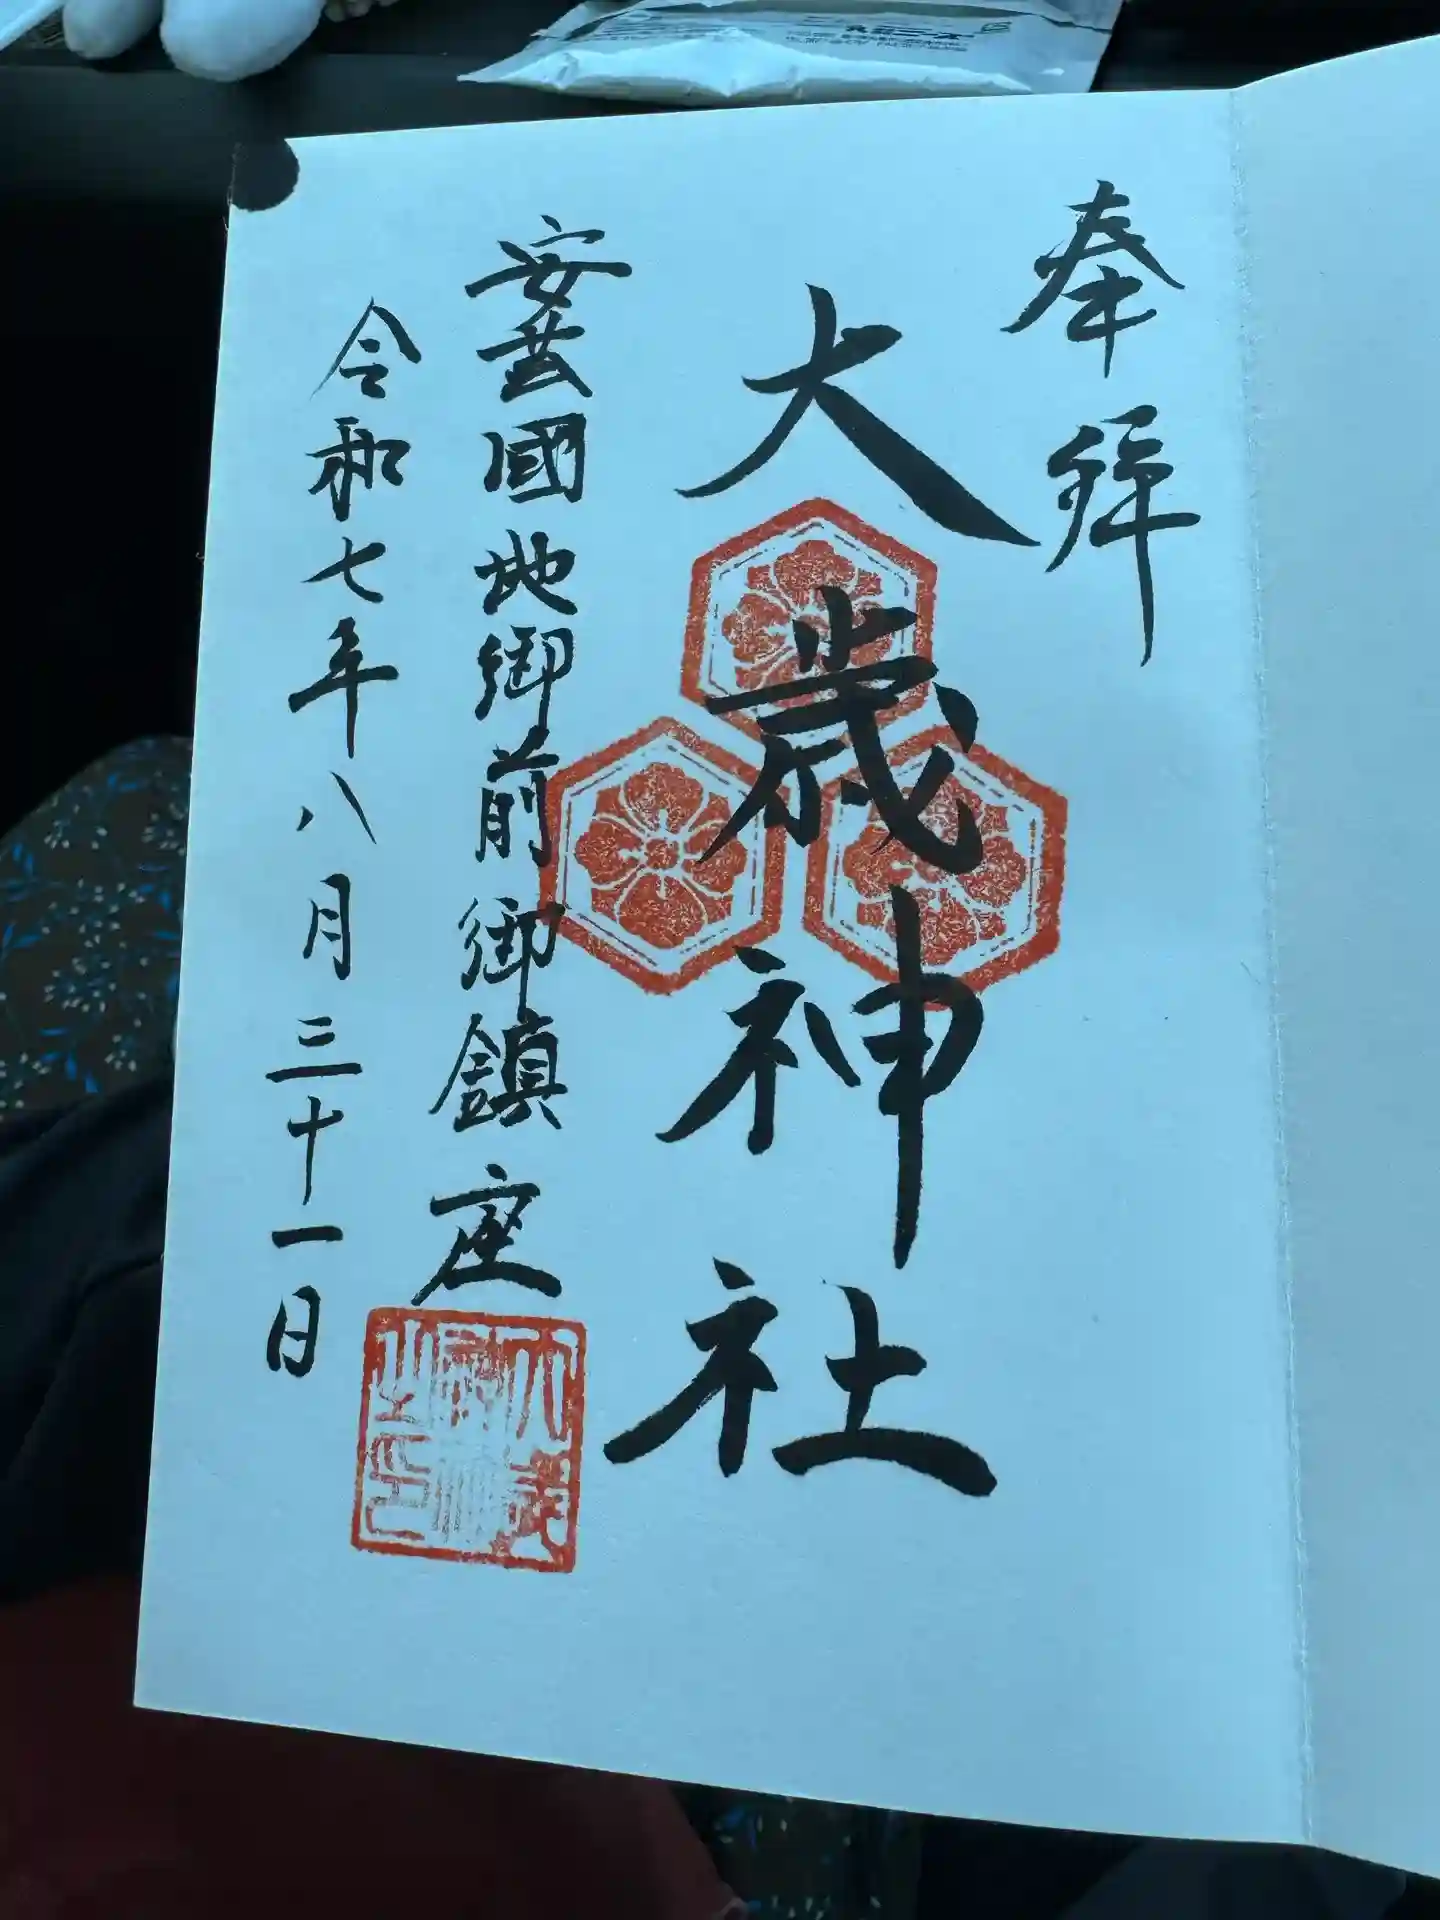 奉拝
大歳神社
安芸國地御前御鎮座
令和七年八月三十一日
大歳神社之印